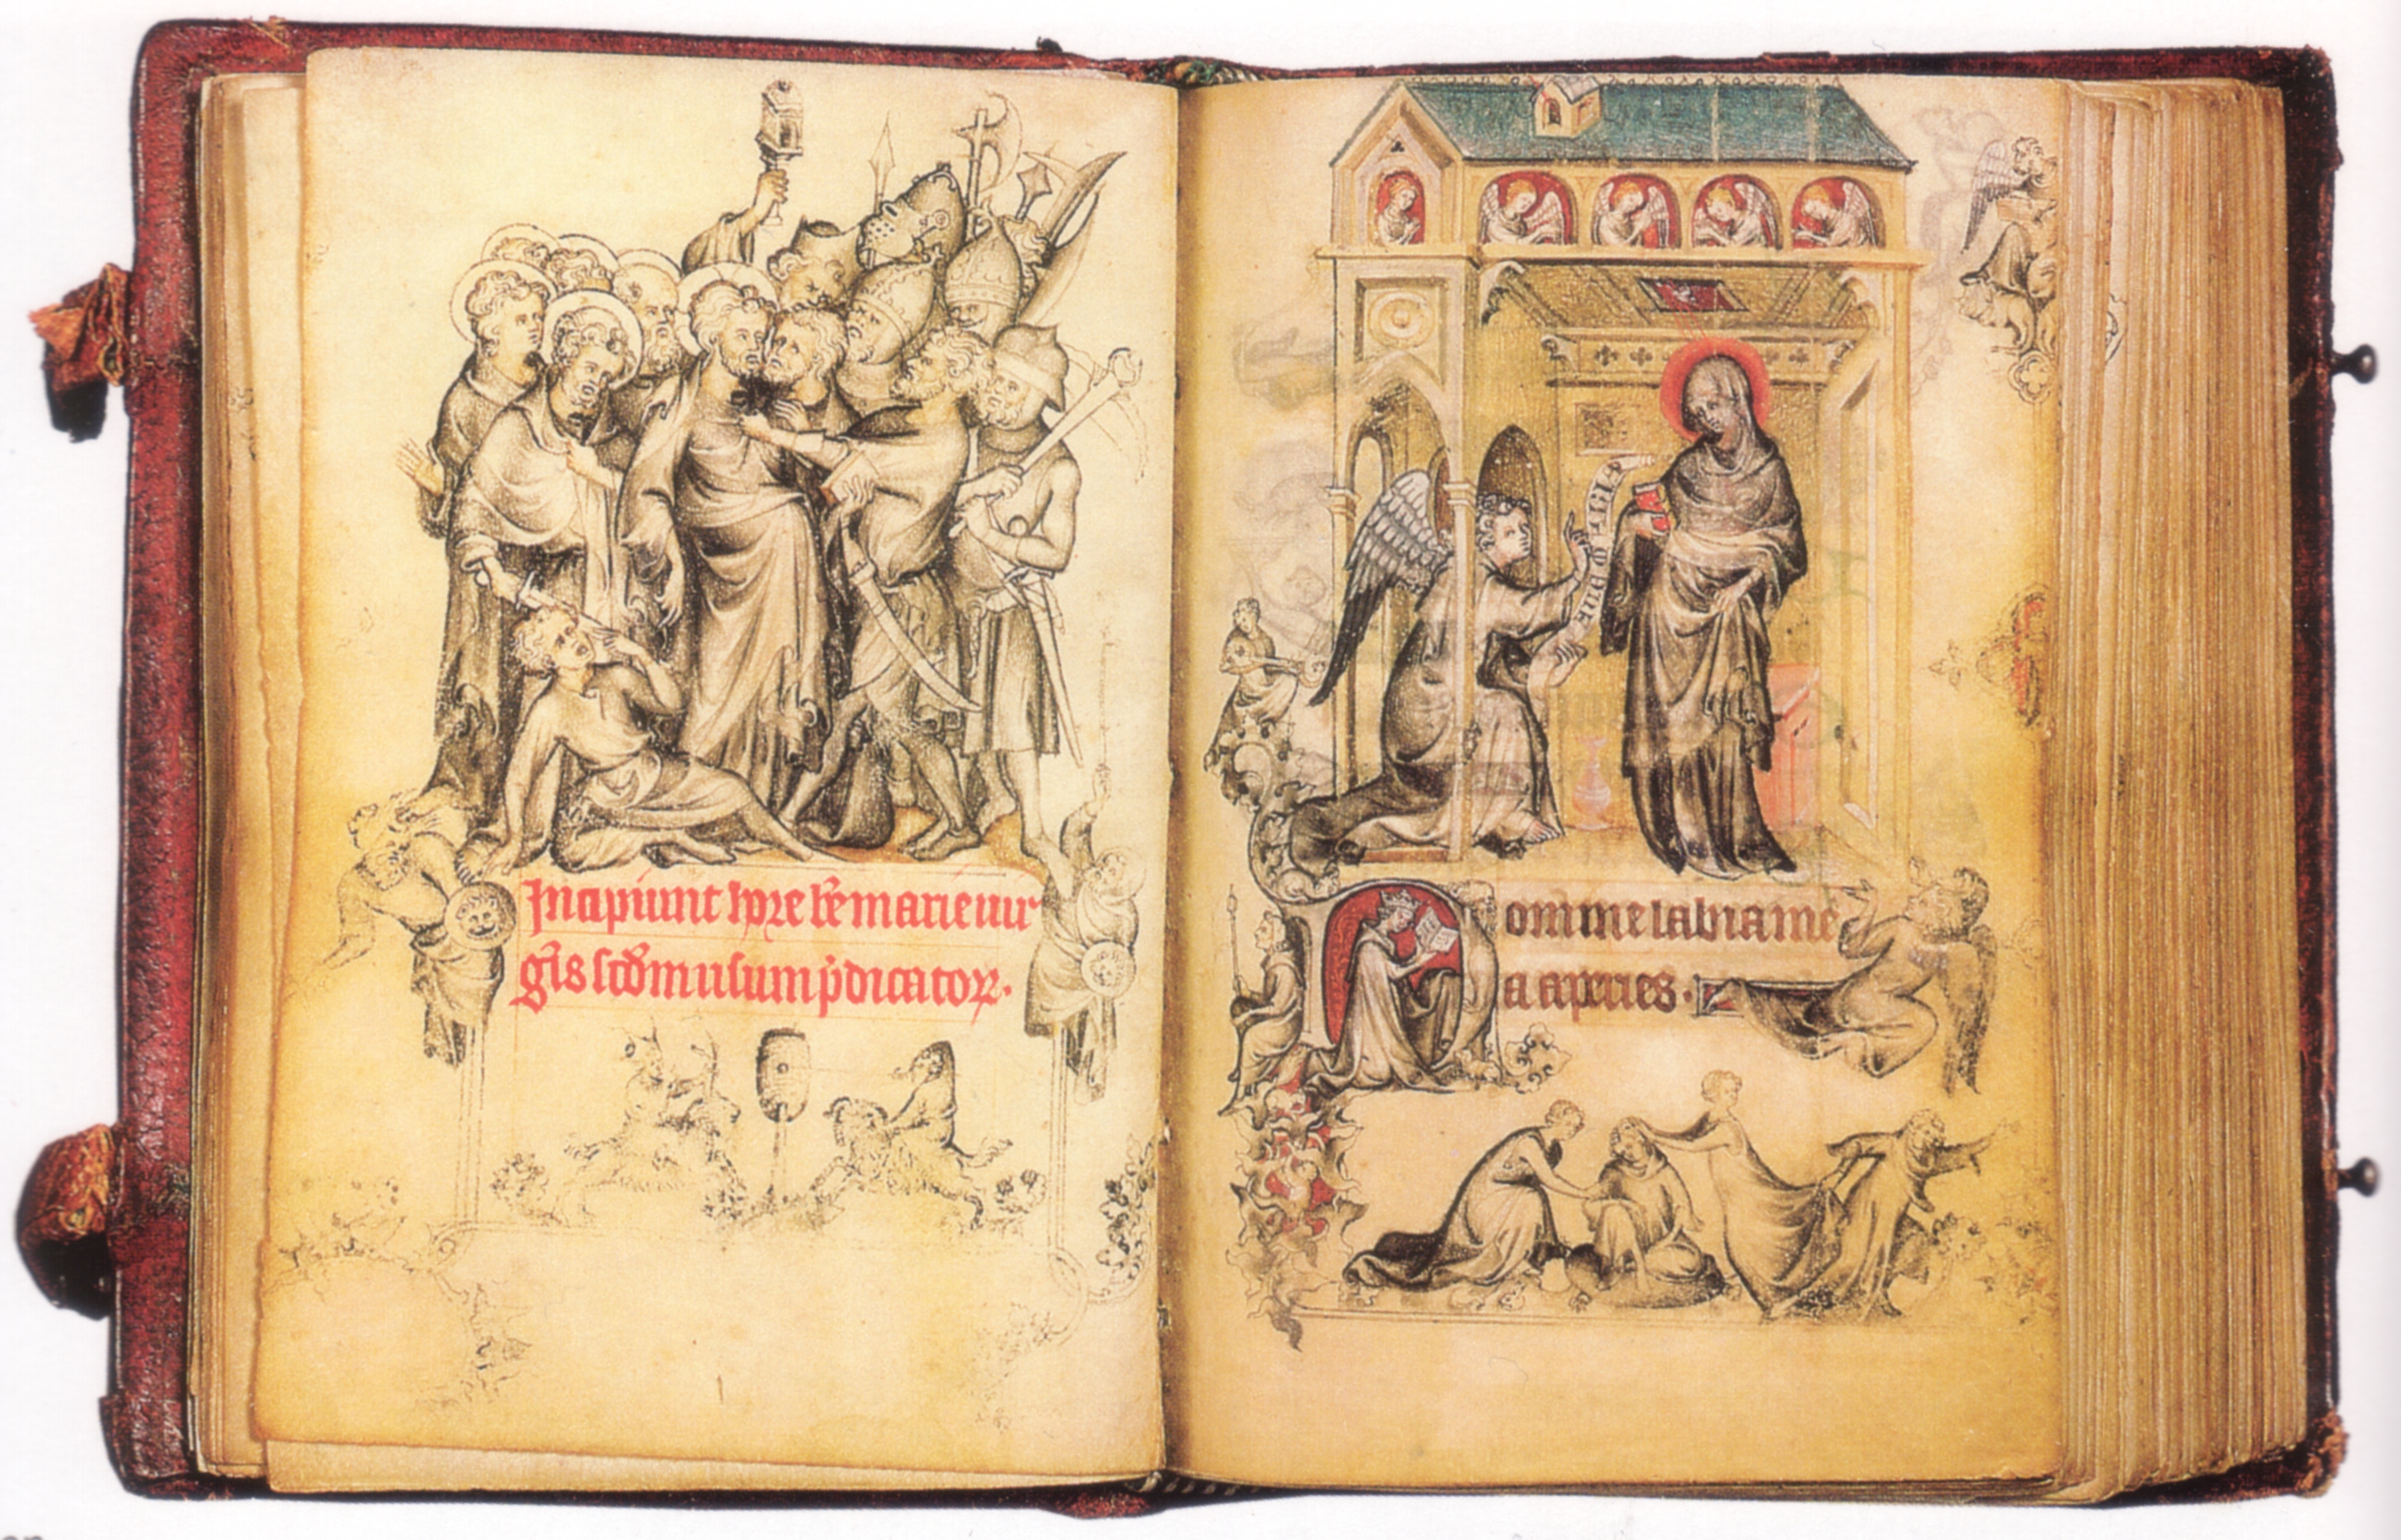 Incipiunt hore bē marie uir
gīs scd̄m usum p̄dicatoꝝ.
Domine labia me
a aperies.